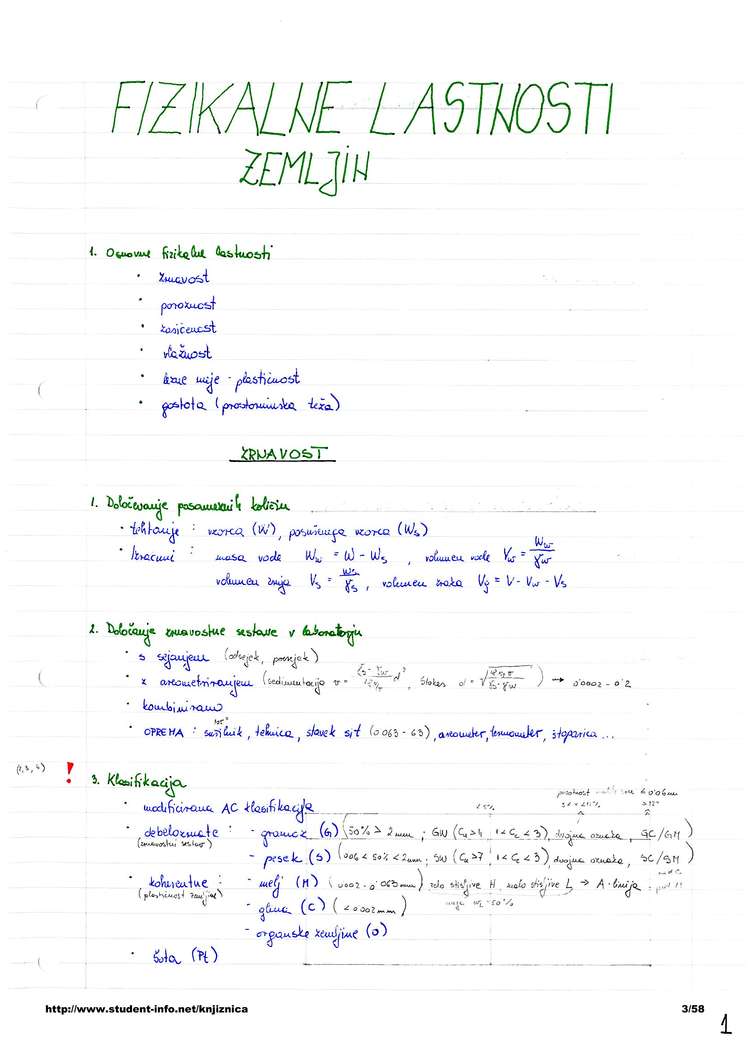 FIZIKALNE LASTNOSTI
ZEMLJIN
1. Osnovne fizikalne lastnosti
· zrnavost
· poroznost
· zasičenost
· vlažnost
· lezne meje - plastičnost
· gostota (prostorninska teža)
ZRNAVOST
1. Določevanje posameznih količin
· tehtanje : vzorca (W), posušenega vzorca (Ws)
· Izračuni : masa vode Ww = W - Ws , volumen vode Vw = Ww/γw
volumen zrnja Vs = Ws/γs , volumen zraka Vg = V - Vw - Vs
2. Določanje zrnavostne sestave v laboratoriju
· s sejanjem (odsejek, presejek)
· z areometriranjem (sedimentacija v = d², Stokes d = √ ) → 0'0002 - 0'2
· kombinirano
105°
· OPREMA : sušilnik, tehnica, stavek sit (0.063 - 63), areometer, termometer, štoparica ...
!
3. Klasifikacija
· modificirana AC klasifikacija
· debelozrnate : - gramoz (G) (50% > 2mm ; GW (Cu>4 ; 1<Cc<3), dvojna oznaka, GC/GM)
(zrnavostni sestav)
- pesek (S) (006 < 50% < 2mm ; SW (Cu>7 ; 1<Cc<3), dvojna oznaka, SC/SM)
· koherentne : - melj (M) (0002 - 0'063mm) zelo stisljive H, malo stisljive L → A-linija
(plastičnost zemljine)
meja WL = 50%
- glina (C) (<0002mm)
- organske zemljine (O)
· šota (Pt)
http://www.student-info.net/knjiznica
3/58
1